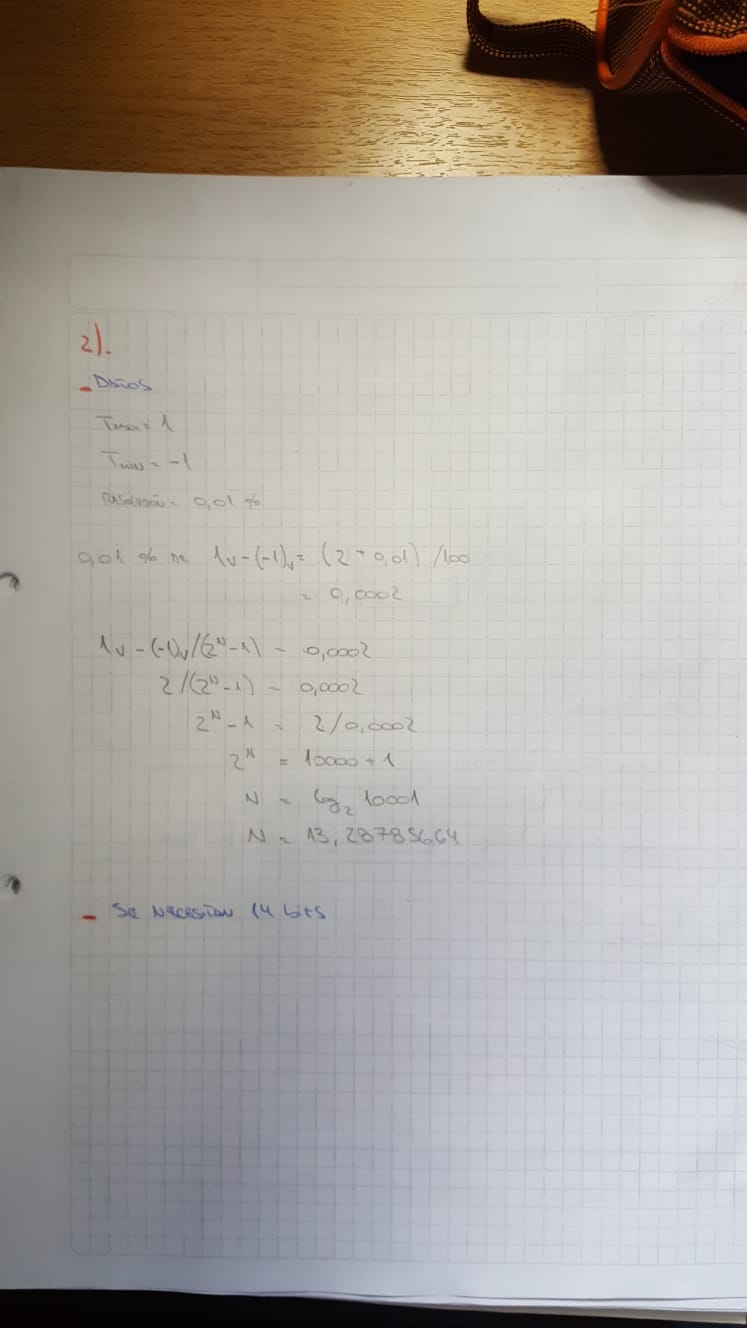 2).
- Datos
Tmax = 1
Tmin = -1
resolución = 0,01 %
0,01 % de 1v - (-1)v = (2 * 0,01) / 100
= 0,0002
1v - (-1)v / (2^N - 1) = 0,0002
2 / (2^N - 1) = 0,0002
2^N - 1 = 2 / 0,0002
2^N = 10000 + 1
N = log₂ 10001
N = 13,28785664
- Se necesitan 14 bits